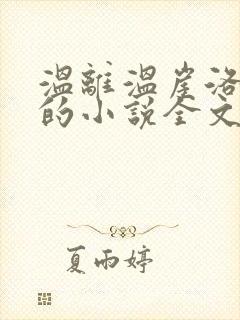 溫離溫崖洛
的小說全文
夏雨婷